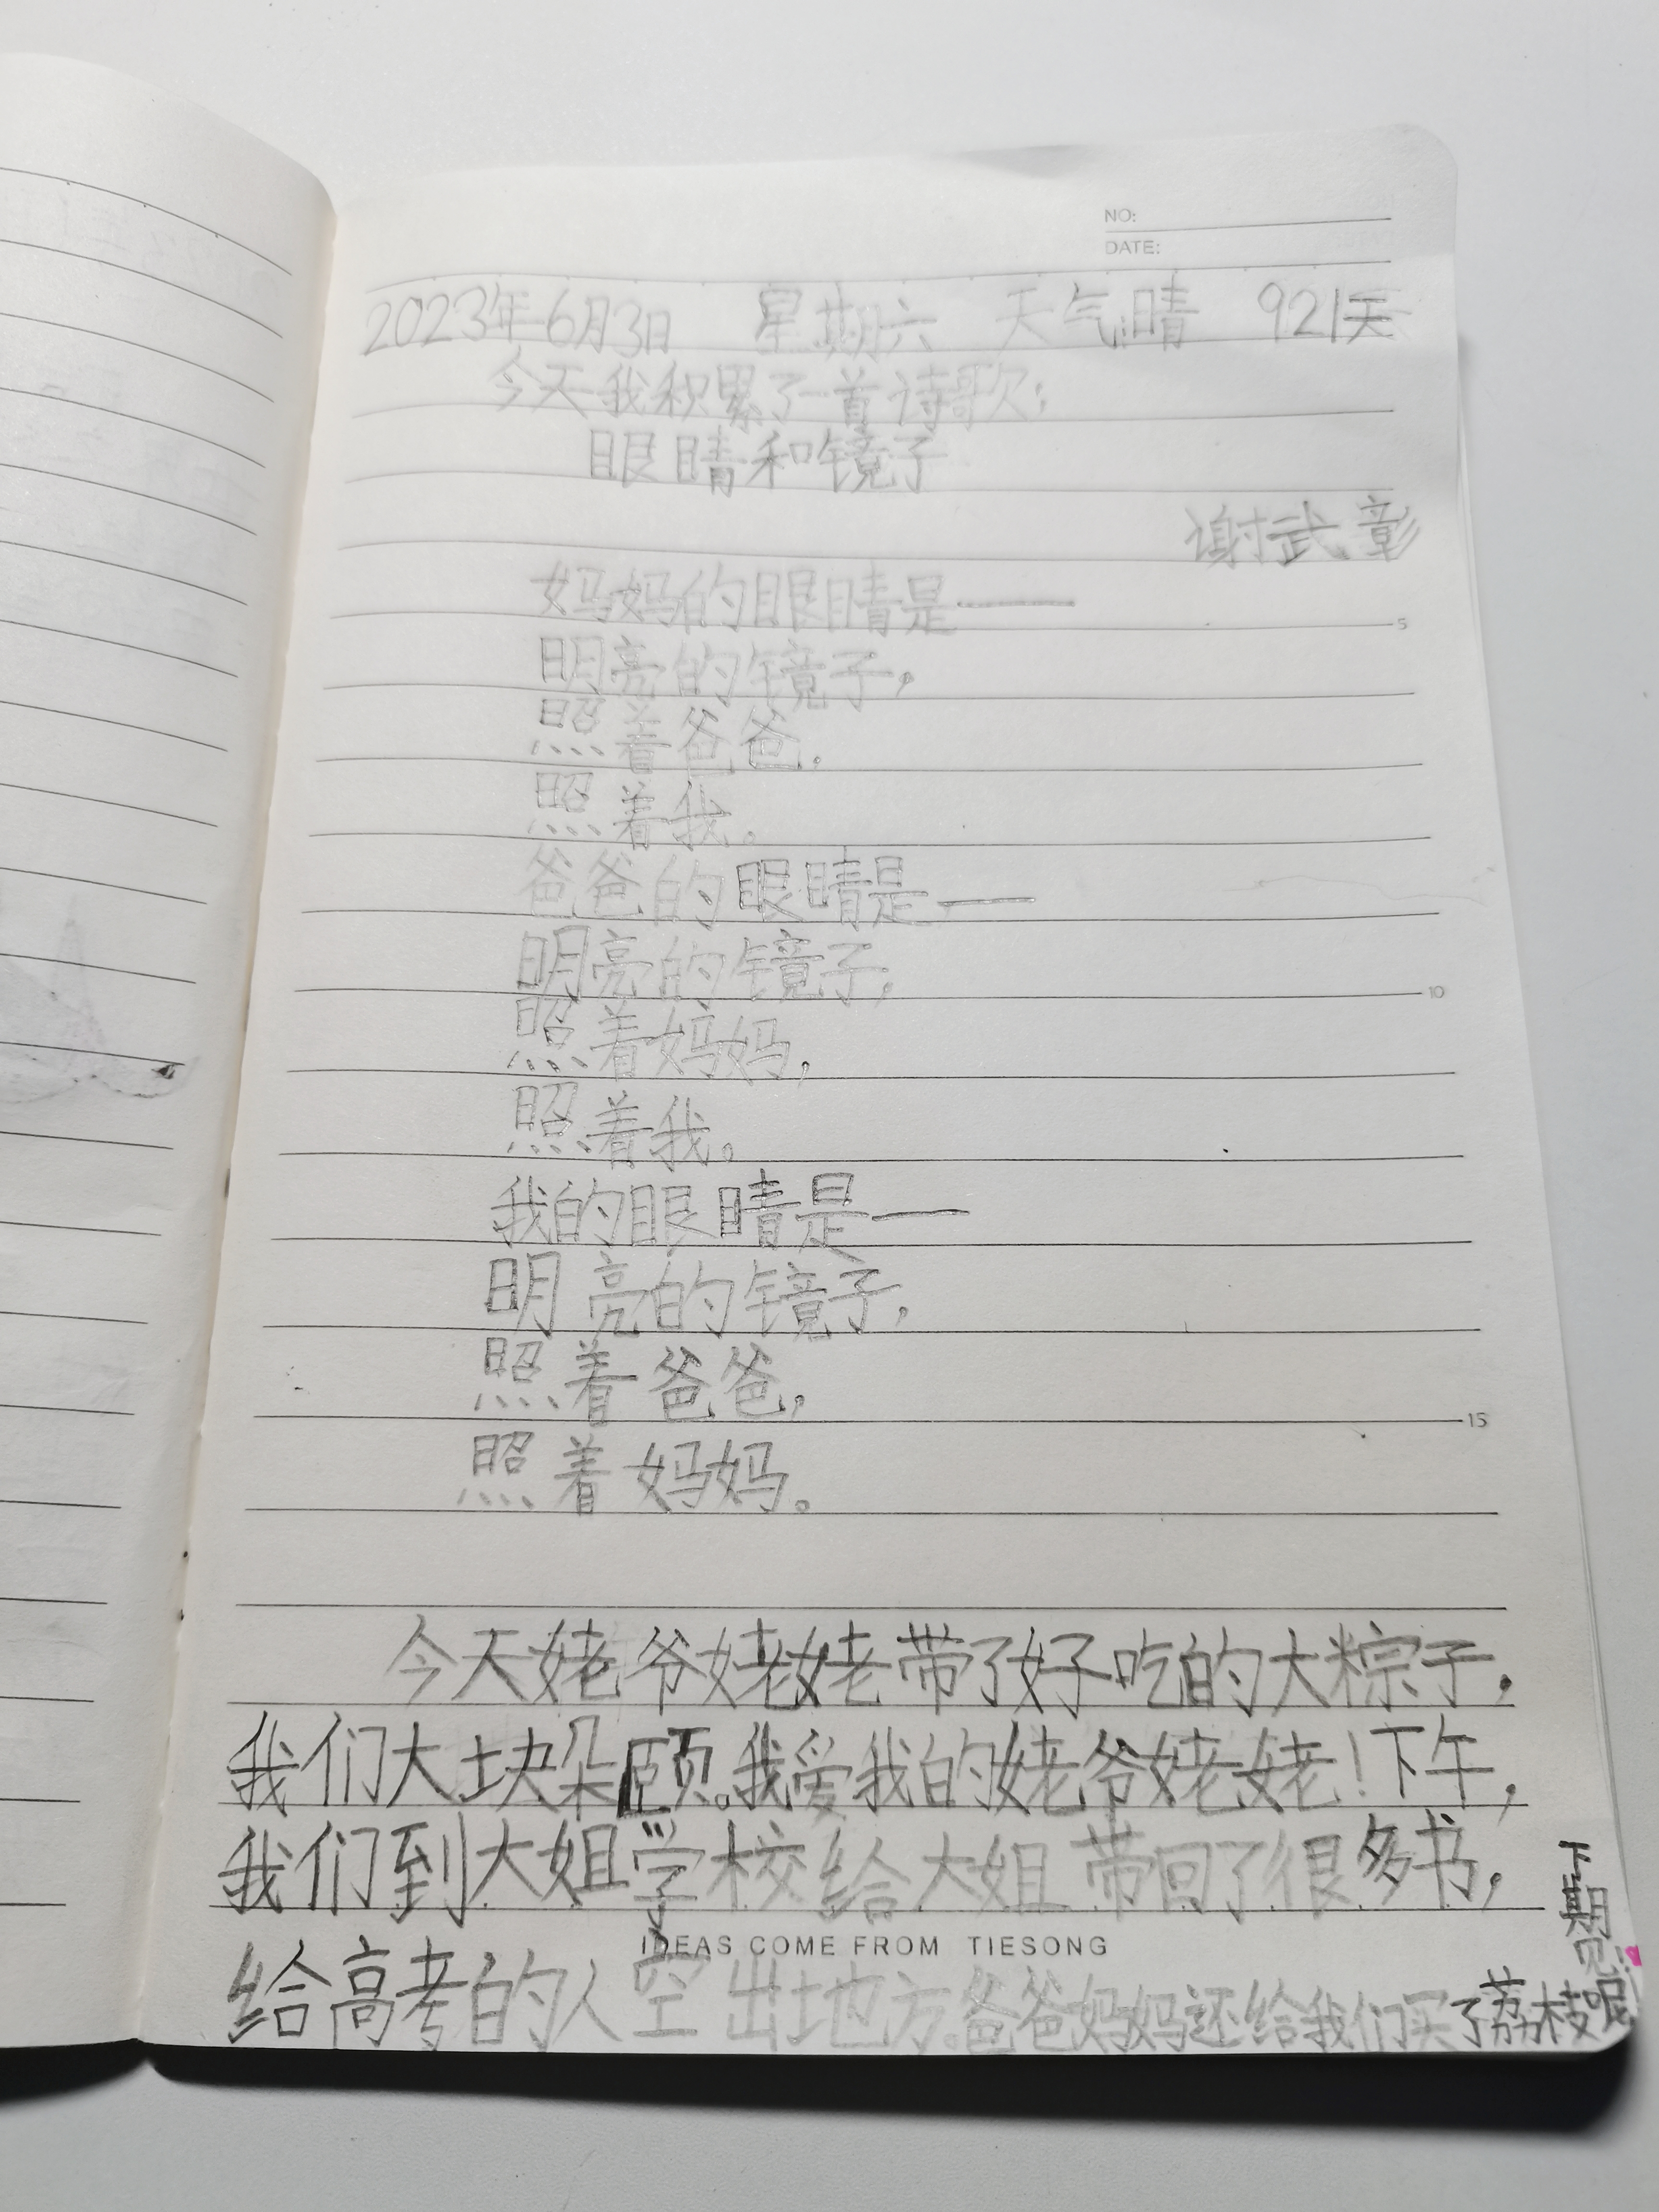 NO:
DATE:
2023年6月3日 星期六 天气晴 921天
今天我积累了一首诗歌:
眼睛和镜子
谢武彰
妈妈的眼睛是——
5
明亮的镜子,
照着爸爸,
照着我。
爸爸的眼睛是——
明亮的镜子,
10
照着妈妈,
照着我。
我的眼睛是——
明亮的镜子,
照着爸爸,
15
照着妈妈。
今天姥爷姥姥带了好吃的大粽子,
我们大块朵颐。我爱我的姥爷姥姥!下午,
我们到大姐学校给大姐带回了很多书,
IDEAS COME FROM TIESONG
给高考的人空出地方。爸爸妈妈还给我们买了荔枝呢
下期见!